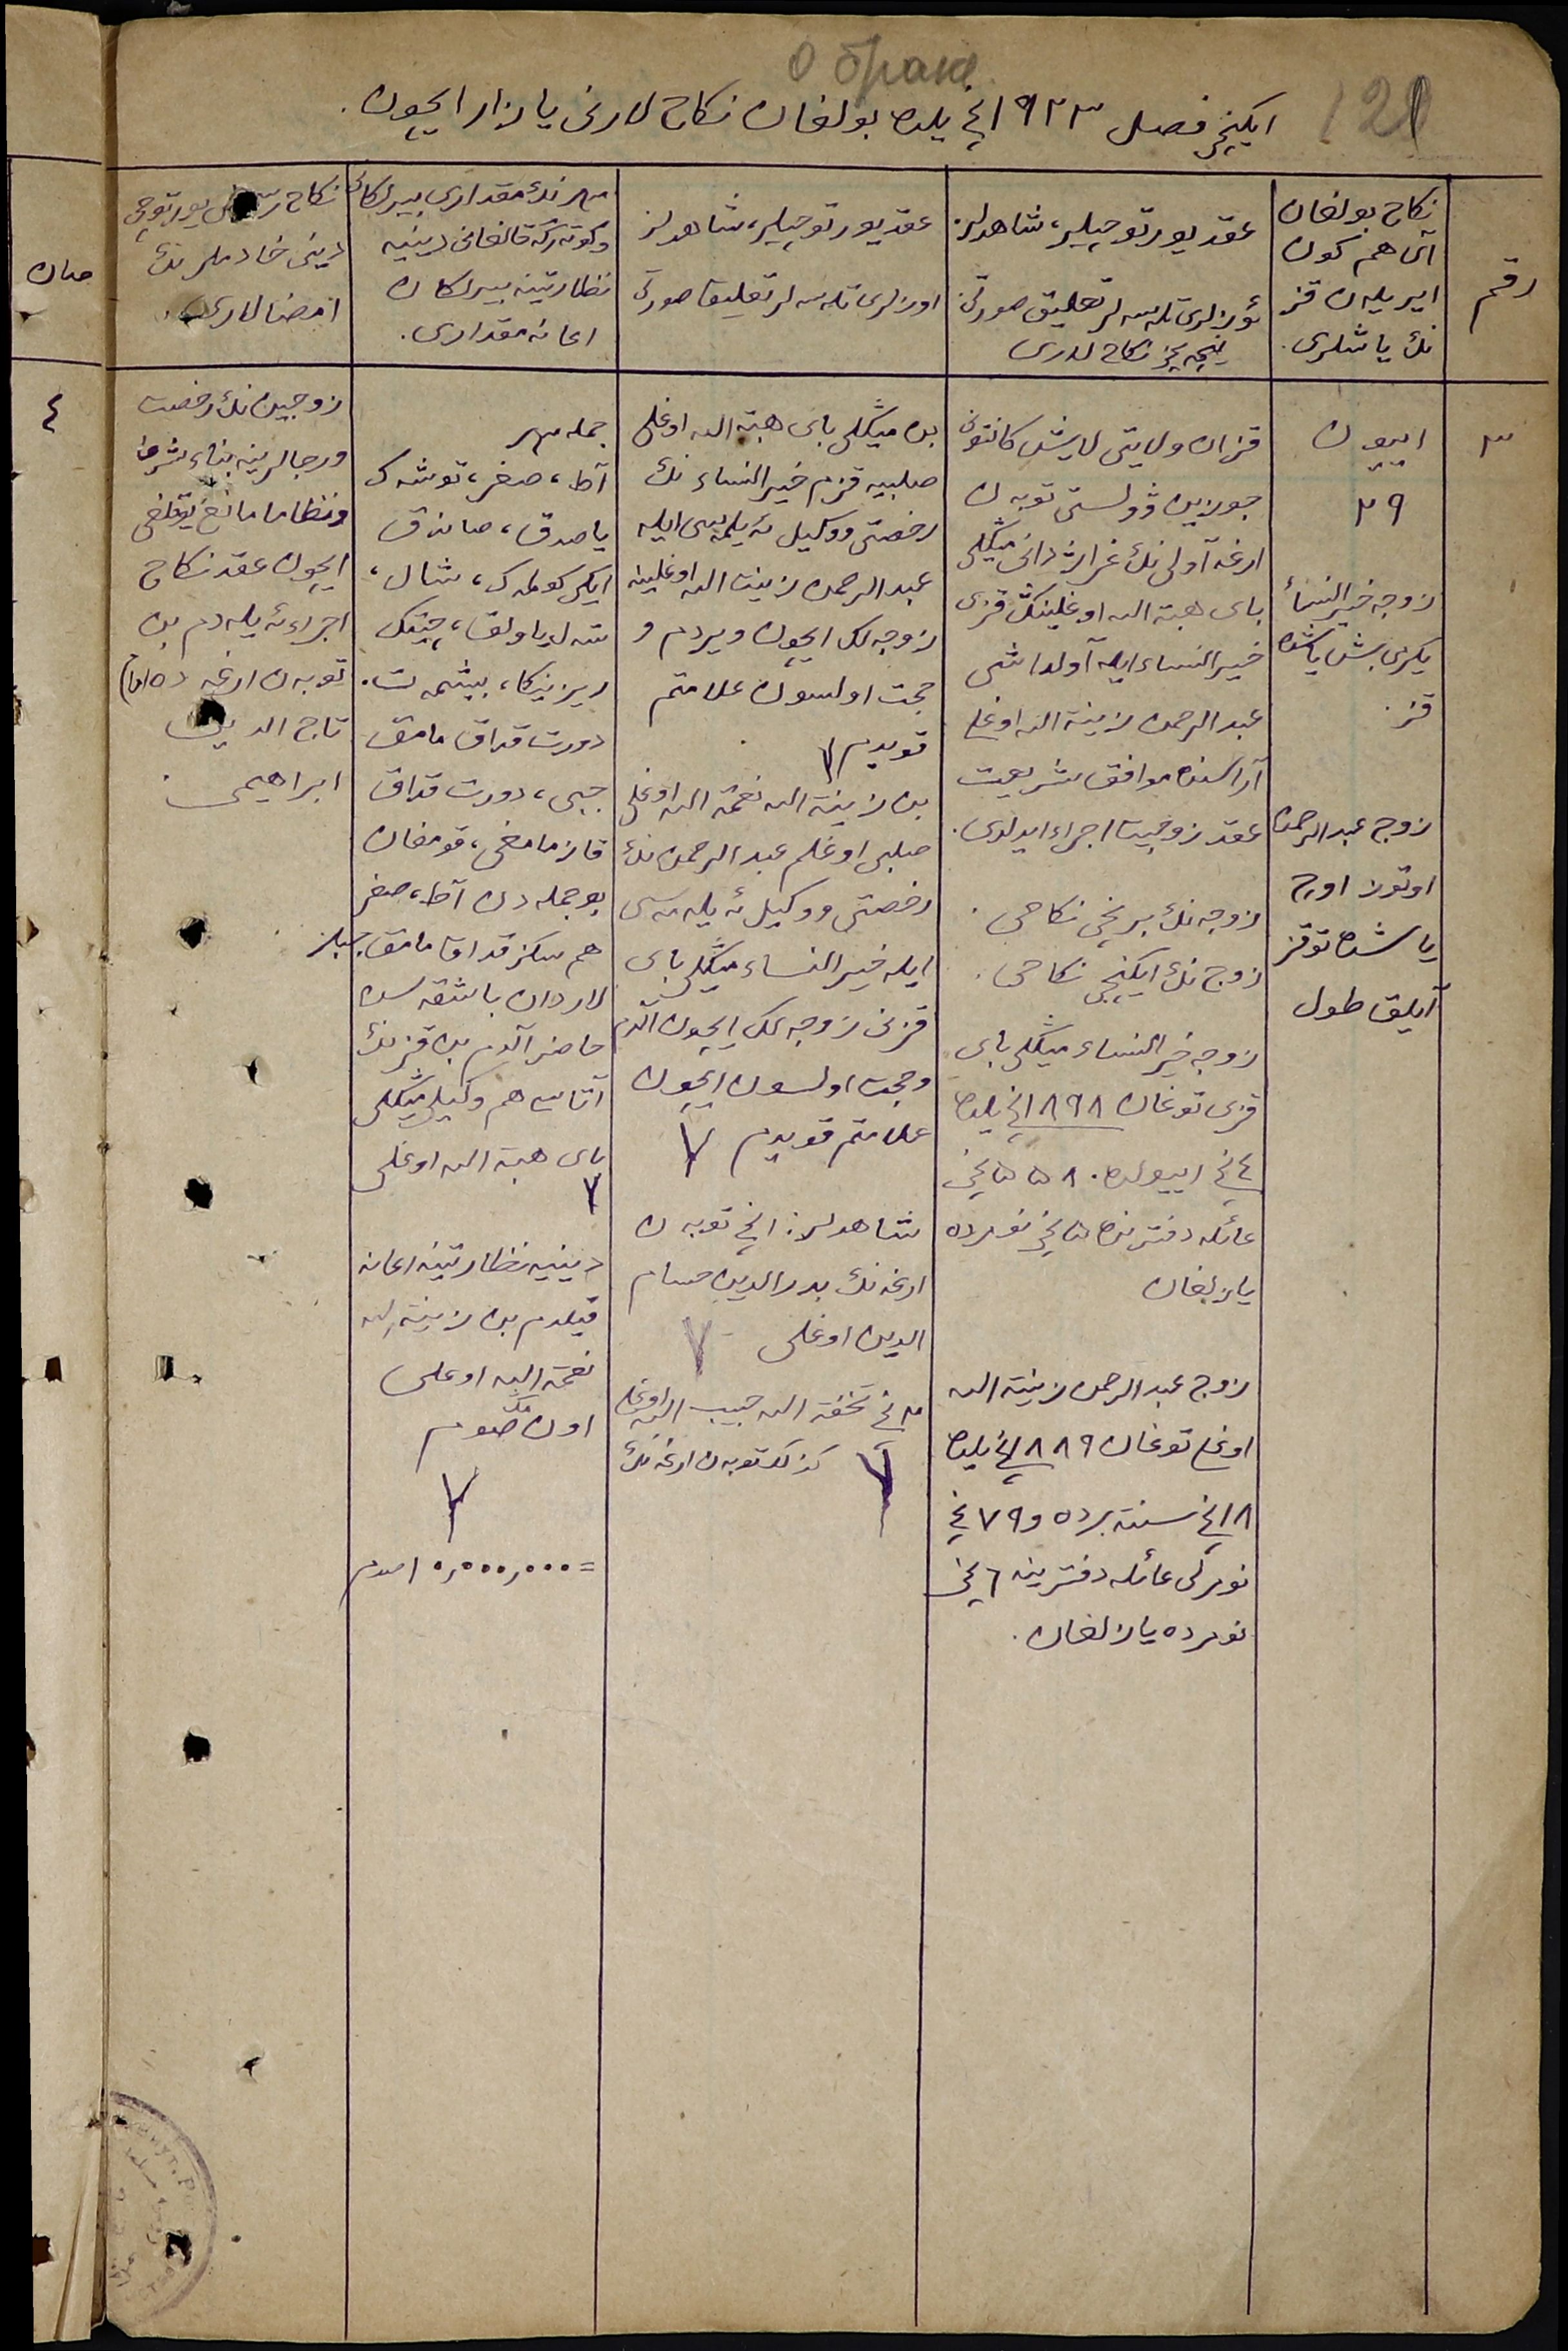 о браке
121
ایکنچی فصل ۱۹۲۳ نچی یلده بولغان نکاح لارنی یازار ایچون.
رقم
نکاح بولغان
آی هم کون
ایر بله ن قز
نڭ یاشلری.
عقد یورتوچیلر، شاهدلر.
ئوزلری تله سه لر تعلیق صورتی
نیچه نچی نکاح لاری
عقد یورتوچیلر، شاهدلر
اوزلری تله سه لر تعلیق صورتی
مهرنڭ مقداری بیرلگان
وکوته رگه قالغانی دینیه
نظارتینه بیرلگان
اعانه مقداری.
نکاح یورتوچی
دینی خادملرنڭ
امضالاری
۳
اییون
۲۹
زوجه خیرالنساء
یکرمی بش یاشنده
قز.
زوج عبدالرحمن
اوتوز اوچ
یاشنده توقز
آیلق طول
قزان ولایتی لایش کانتونی
وولستی توبه ن
ارغه آولی نڭ میڭلی
بای هبة الله اوغلینڭ قزی
خیرالنساء ایله آولداشی
عبدالرحمن زینة الله اوغلی
آراسنده موافق شریعت
عقد زوجیت اجراء ایدلدی.
زوجه نڭ برنچی نکاحی.
زوج نڭ ایکنچی نکاحی.
زوجه خیرالنساء میڭلی بای
قزی توغان ۱۸۹۸ نچی یلده
٤ نچی اییولده. ۵۵۸ نچی
عائله دفترنده ۵ نچی نومرده
یازلغان
زوج عبدالرحمن زینة الله
اوغلی توغان ۱۸۸۹ نچی یلده
۱۸ نچی سنتەبرده و ۷۹ نچی
نومرلی عائله دفترینه ٦ نچی
نومرده یازلغان.
بن میڭلی بای هبة الله اوغلی
صلبیه قزم خیرالنساء نڭ
رخصتی ووکیل ئه یلمه سی ایله
عبدالرحمن زینة الله اوغلینه
زوجه لک ایچون ویردم و
حجت اولسون علامتم
قویدم
بن زینة الله نعمة الله اوغلی
صلبی اوغلم عبدالرحمن نڭ
رخصتی ووکیل ئه یله مه سی
ایله خیرالنساء میڭلی بای
قزنی زوجه لک ایچون آلدم
وحجت اولسون ایچون
علامتم قویدم
شاهدلر: ۱ نچی توبه ن
ارغه نڭ بدرالدین حسام
الدین اوغلی
۲ نچی تحفة الله حبیب الله اوغلی
کذلک توبه ن ارغه نڭ
جمله مهر
آط، صغر، توشه ک
یاصدق، صاندق
ایکی کولمه ک، شال،
یاولق، چیتک
بیشمه ت.
دورت قداق مامق
جبی، دورت قداق
قاز مامغی، قومغان
بو جمله دن آط، صغر
هم سکز قداق مامق جبلر
لاردان باشقه سن
حاضر آلدم بن قزنڭ
آتاسی هم وکیلی میڭلی
بای هبة الله اوغلی
دینیه نظارتینه اعانه
قیلدم بن زینة الله
نعمة الله اوغلی
اون مڭ صوم
=۱۰,۰۰۰,۰۰۰ صوم
زوجین نڭ رخصت
ورجالرینه بناء شرعا
ونظاما مانع یوقلغی
ایچون عقد نکاح
اجراء ئه یله دم بن
توبه ن ارغه
تاج الدین
ابراهیمی.
صان
٤